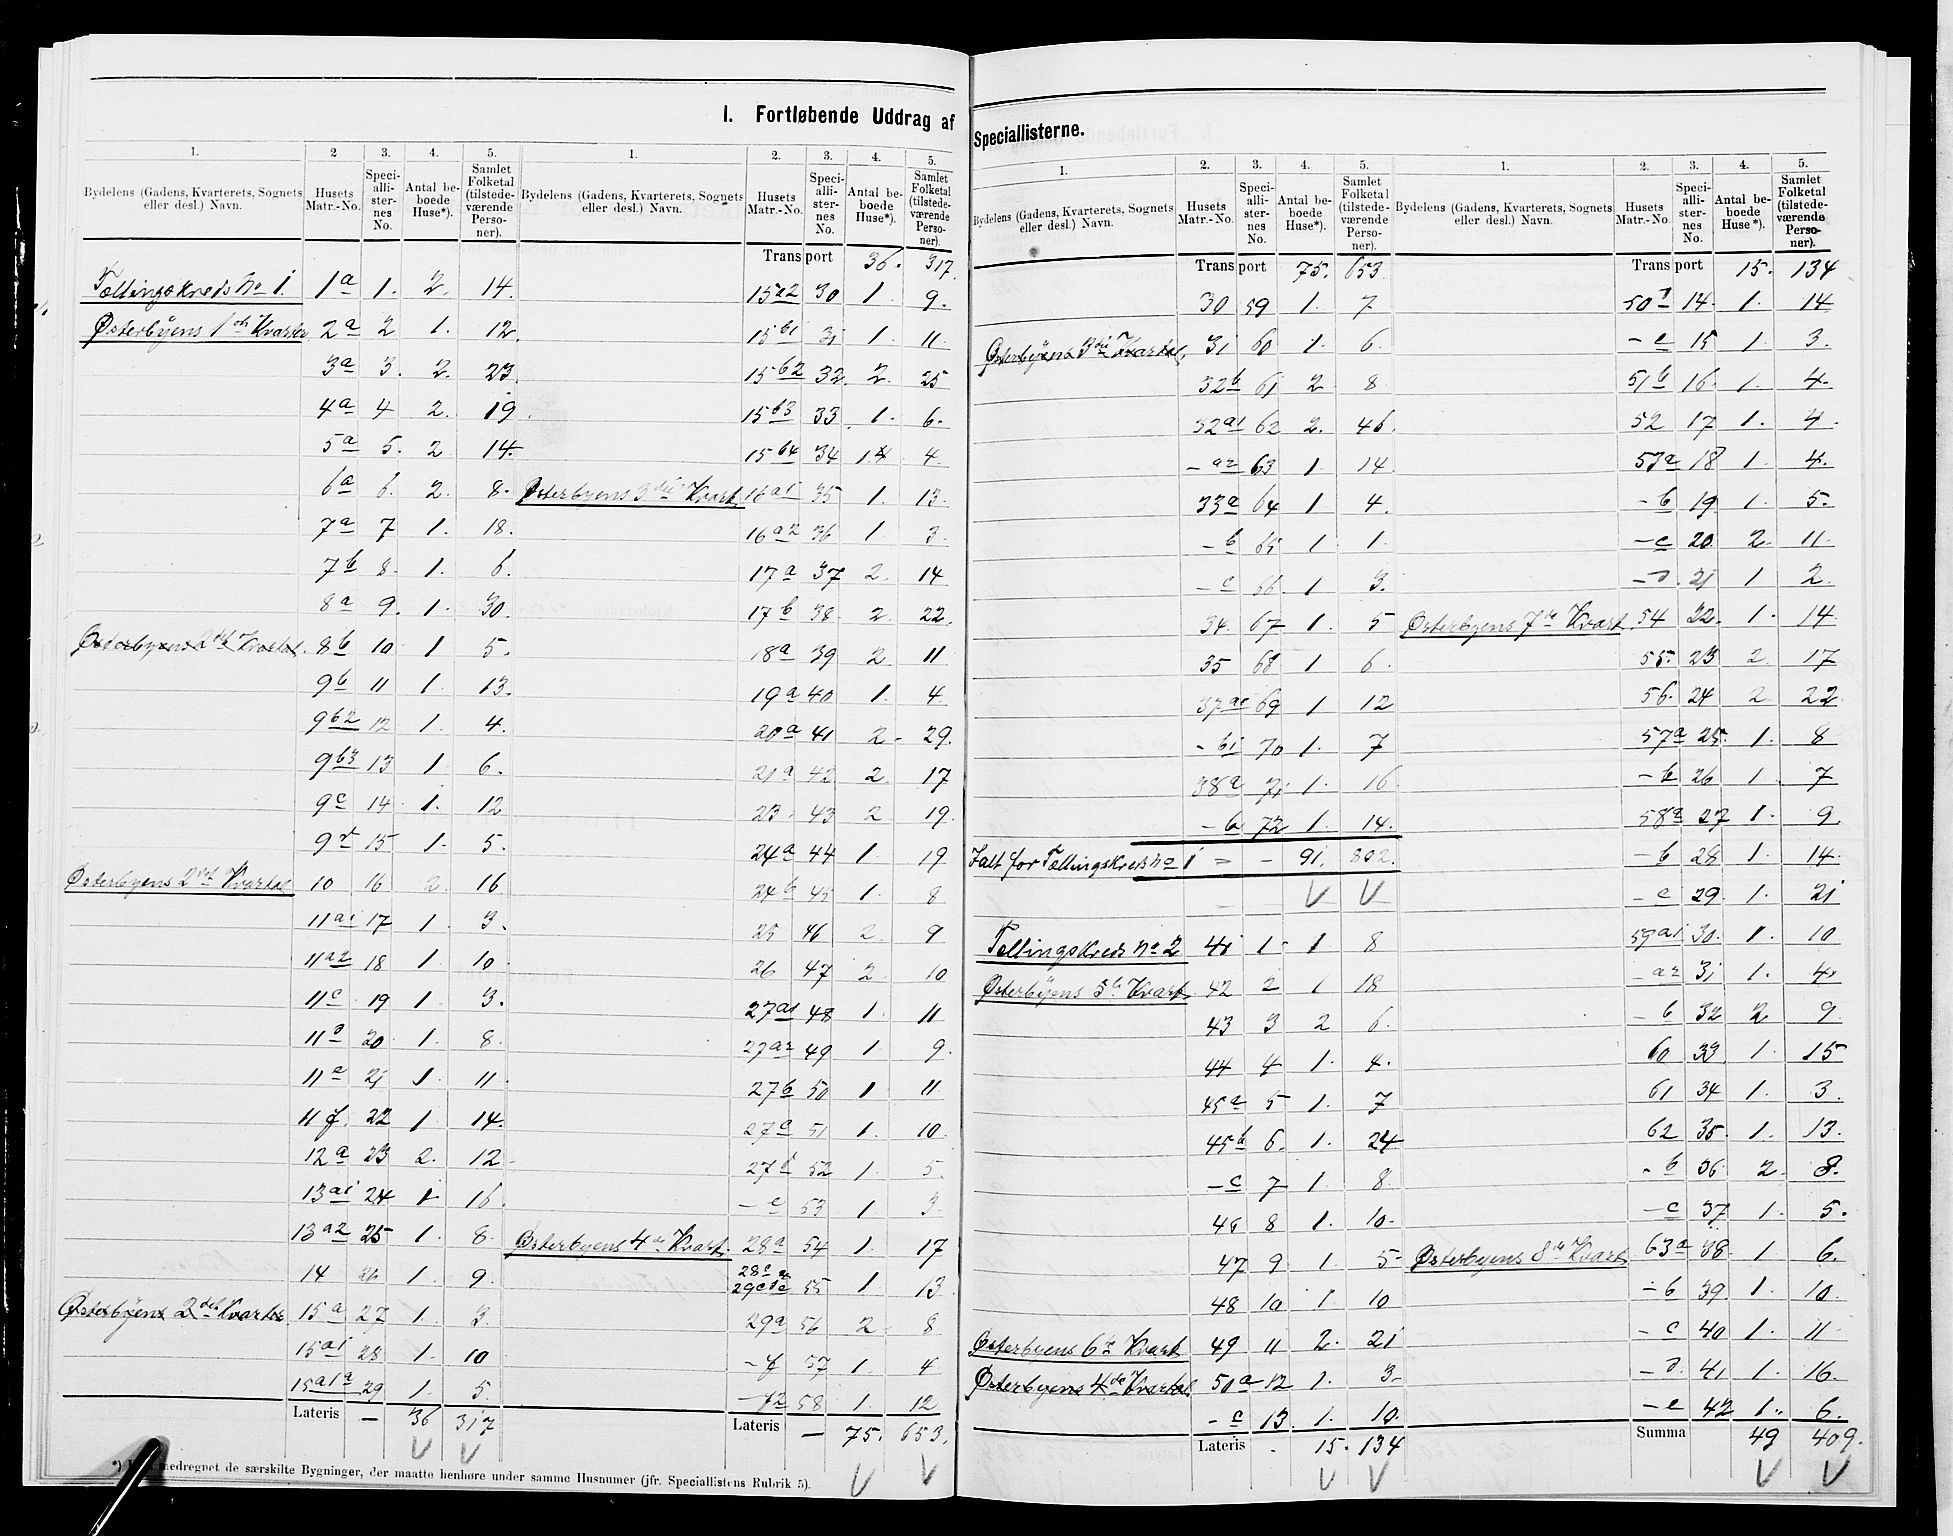 I. Fortløbende Uddrag af Speciallisterne.
1. 2 3. 4. 5.
Bydelens (Gadens, Kvarterets, Sognets eller desl.) Navn. Husets Matr.-No. Speciallisternes No. Antal beboede Huse*). Samlet Folketal (tilstedeværende Personer).
Tællingskreds No 1. 1a 1. 2. 14.
Østerbyens 1ste Kvarter 2a 2 1. 12.
3a 3. 2. 23.
4a 4 2. 19.
5a 5. 2. 14.
6a 6. 2. 8.
7a 7 1. 18.
7b 8. 1. 6.
8a 9. 1. 30.
Østerbyens 2det Kvartal. 8b 10 1 5.
9b 11 1. 13.
9b2 12 1. 4.
9b3 13 1 6.
9c 14 1. 12
9d 15 1. 5.
Østerbyens 2det Kvartal 10 16 2. 16
11a1 17 1. 3.
11a2 18 1. 10.
11c 19 1 3.
11d 20 1. 8.
11e 21 1. 11.
11f. 22 1. 14.
12a 23 2. 12
13a1 24 1 16
13a2 25 1. 8.
14 26 1. 9.
Østerbyens 2det Kvarter 15a 27 1. 3.
15a1 28 1. 10
15a1a 29 1. 5.
Lateris — 36 317
1. 2. 3. 4. 5.
Bydelens (Gadens, Kvarterets, Sognets eller desl.) Navn. Husets Matr.-No. Speciallisternes No. Antal beboede Huse*). Samlet Folketal (tilstedeværende Personer).
Transport 36. 317.
15a2 30 1. 9.
15b1 31 1. 11.
15b2 32. 2. 25
15b3 33 1. 6.
15b4 34 1. 4.
Østerbyens 3die Kvart. 16a1 35 1. 13.
16a2 36 1 3.
17a 37 2. 14
17b 38 2. 22.
18a 39 2 11
19a 40 1. 4
20a 41 2 29.
21a 42 2. 17
23 43 2 19.
24a 44 1. 19
24b 45 1. 8
25 46 2. 9
26 47 2. 10
27a1 48 1. 11
27a2 49 1 9.
27b 50 1 11
27c 51 1. 10.
27d 52 1. 5.
— e 53 1 3.
Østerbyens 4de Kvart. 28a 54 1. 17
55 1 13
29a 56 2 8
— f 57 1. 4
— f2 58 1. 12
Lateris — 75. 653.
*) medregnet de særskilte Bygninger, der maatte henhøre under samme Husnumer (jfr. Speciallistens Rubrik 5).
1. 2. 3. 4. 5.
Bydelens (Gadens, Kvarterets, Sognets eller desl.) Navn. Husets Matr.-No. Speciallisternes No. Antal beboede Huse*). Samlet Folketal (tilstedeværende Personer).
Transport 75. 653.
30 59 1. 7
Østerbyens 3die Kvartal. 31 60 1. 6.
32b 61 2 8
32a1 62 2. 46.
— a2 63 1. 14
33a 64 1 4.
— b 65 1 1.
— c 66 1 3.
34. 67 1. 5
35 68 1 6.
37a1 69 1 12
— b1 70 1. 7
38a 71 1. 16
— b 72 1. 14.
Ialt for Tællingskreds No 1 = — 91. 802.
Tællingskreds No 2 41 1 1 8
Østerbyens 5te Kvart. 42 2 1 18
43 3 2 6.
44 4 1. 4.
45a 5 1. 7
45b 6. 1. 24
— c 7 1. 8.
46 8 1. 10.
47 9 1. 5
48 10 1. 10
Østerbyens 6te Kvart 49 11 2. 21
Østerbyens 4de Kvartal. 50a 12 1. 3
— c 13. 1. 10.
Lateris . 15. 134
1. 2. 3. 4. 5.
Bydelens (Gadens, Kvarterets, Sognets eller desl.) Navn. Husets Matr.-No. Speciallisternes No. Antal beboede Huse*). Samlet Folketal (tilstedeværende Personer).
Transport 15. 134
14. 1. 14
— e 15 1. 3.
51b 16. 1. 4.
52 17 1. 4.
53a 18 1 4.
— b 19 1. 5.
— c 20 2. 11.
— d. 21 1 2.
Østerbyens 7de Kvart. 54 22. 1. 14.
55. 23 2. 17
56. 24 2 22.
57a 25. 1. 8
— b 26 1. 7
58a 27 1. 9.
— b 28 1. 14.
— c 29 1. 21
59a1 30. 1. 10
— a2 31 1. 4.
— b 32 2 9.
60 33 1. 15
61 34 1. 3.
62 35. 1. 13.
— b 36 2. 8.
— c 37 1. 5.
Østerbyens 8de Kvart. 63a 38. 1. 6.
— b 39 1. 10.
— c 40 1. 11
— d. 41 1. 16.
— e 42 1. 6.
Summa 49 409.